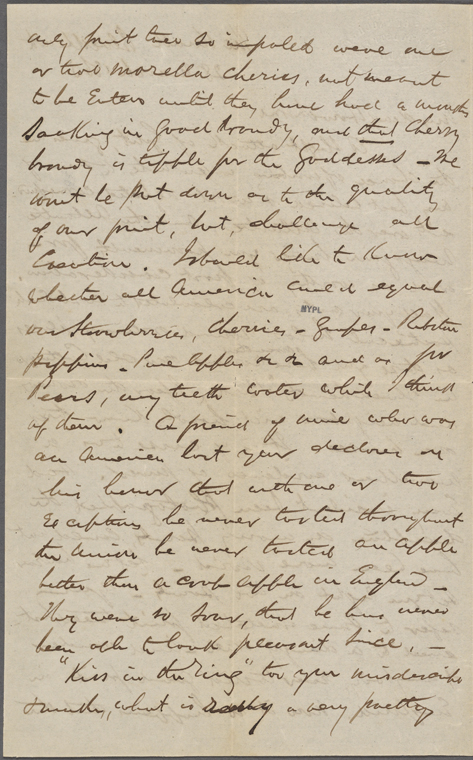 only fruit ever so impaled were one
or two Morella cherries, not meant
to be Eaten until they have had a months
soaking in good brandy, and that Cherry
brandy is tipple for the Goddesses - We
wont be put down as to the quality
of our fruit, but, challenge all
Creation. I should like to know
whether all America could equal
NYPL
our Strawberries, Cherries - Grapes - Ribston
pippins - Pine Apples &c &c and as for
Pears, my teeth water while I think
of them. A friend of mine who was
in America last year declares on
his honor that with one or two
Exceptions he never tasted throughout
the Union he never tasted an apple
better than a crab apple in England -
They were so sour, that he has never
been able to look pleasant since. -
"Kiss in the Ring" too you misdescribe
, what is a very pretty